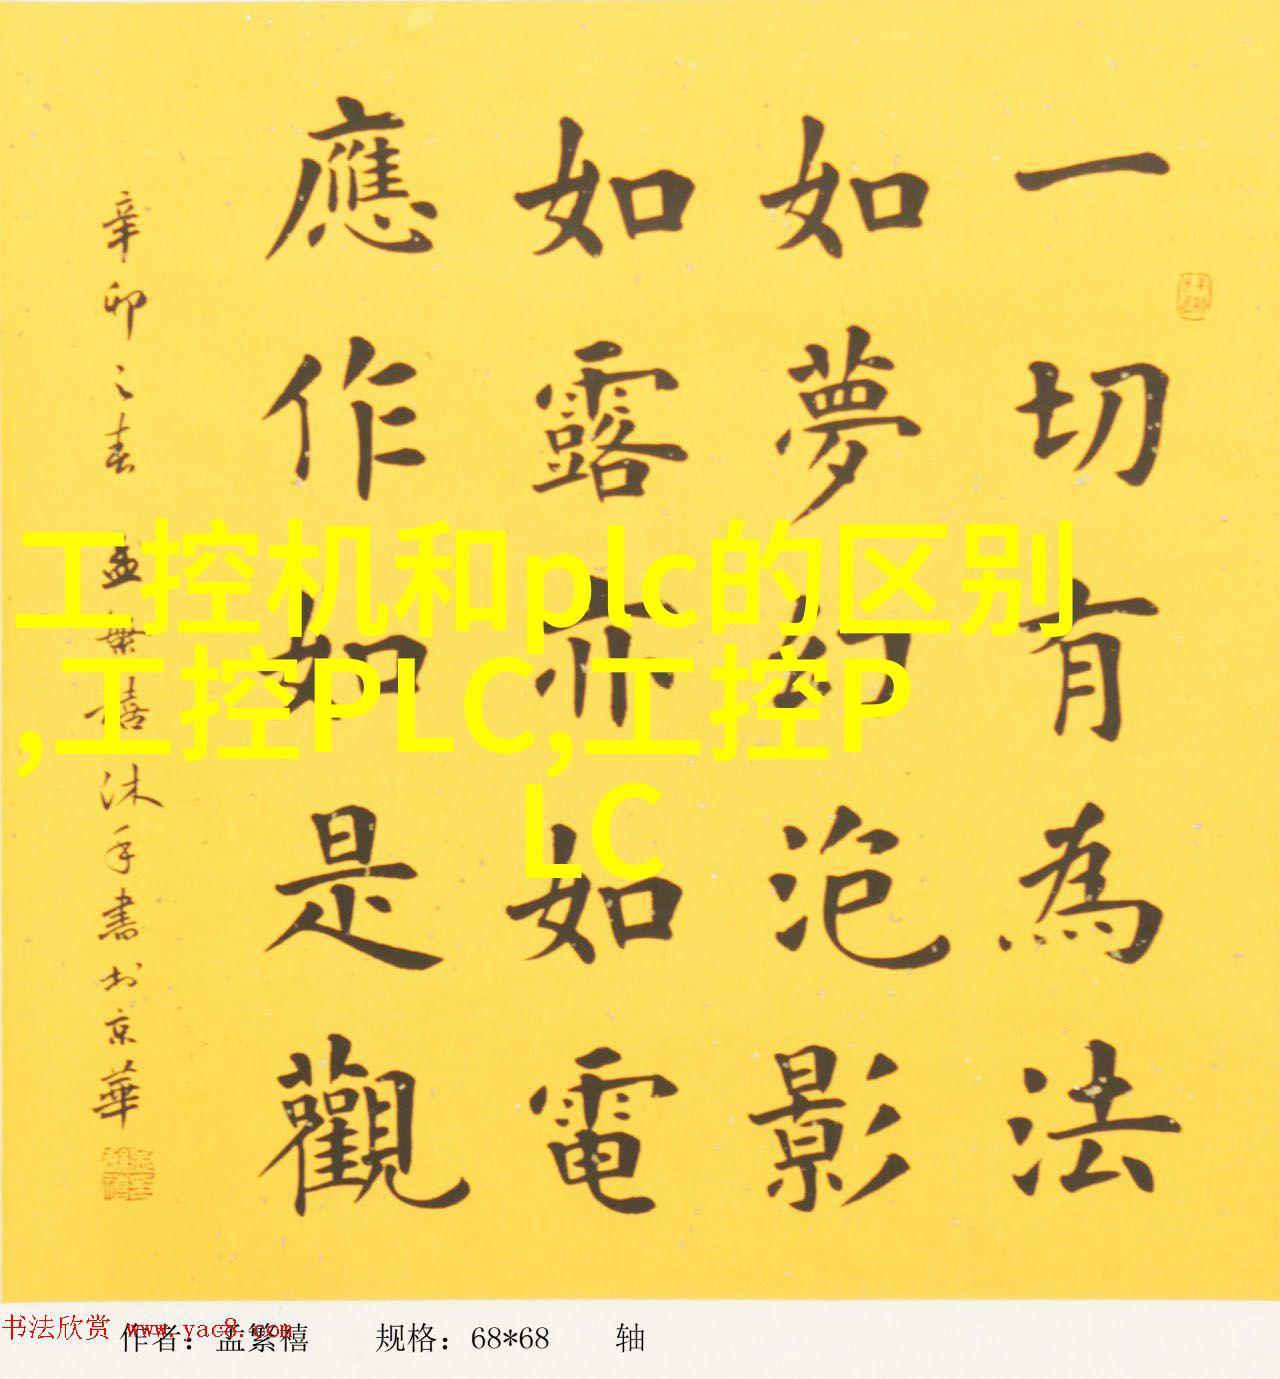 一切有為法
如夢幻泡影
如露亦如電
應作如是觀
辛卯之春 孟繁禧沐手書於京華
工控机和plc的区别
,工控PLC,工控P
LC
书法欣赏 www.yac8.com
作者：孟繁禧 规格：68*68 轴